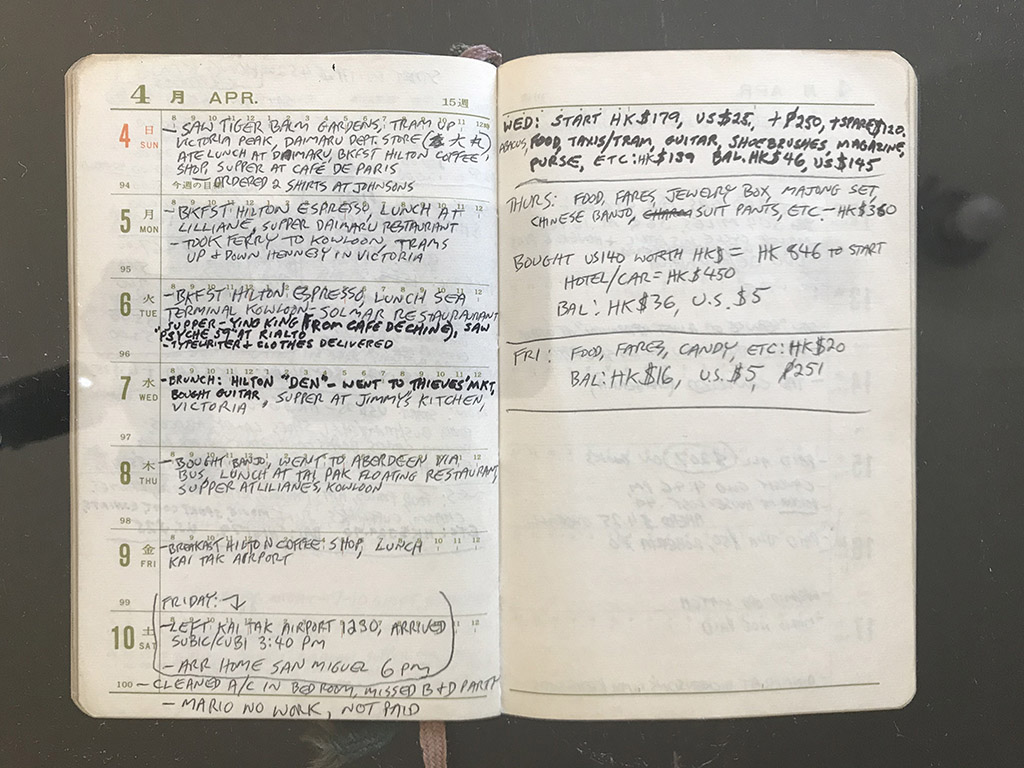 4 月 APR. 15週
4 日 SUN
- SAW TIGER BALM GARDENS, TRAM UP
VICTORIA PEAK, DAIMARU DEPT. STORE (大丸)
ATE LUNCH AT DAIMARU, BKFST HILTON COFFEE
SHOP, SUPPER AT CAFÉ DE PARIS
94 今週の目
ORDERED 2 SHIRTS AT JOHNSONS
5 月 MON
- BKFST HILTON ESPRESSO, LUNCH AT
LILLIANE, SUPPER DAIMARU RESTAURANT
- TOOK FERRY TO KOWLOON, TRAMS
UP & DOWN HENNESY IN VICTORIA
95
6 火 TUE
- BKFST HILTON ESPRESSO, LUNCH SEA
TERMINAL KOWLOON - SOLMAR RESTAURANT
SUPPER - YING KING (FROM CAFE DE CHINE), SAW
"PSYCHE 59" AT RIALTO
- TYPEWRITER & CLOTHES DELIVERED
96
7 水 WED
- BRUNCH: HILTON "DEN" - WENT TO THIEVES' MKT,
BOUGHT GUITAR, SUPPER AT JIMMY'S KITCHEN,
VICTORIA
97
8 木 THU
- BOUGHT BANJO, WENT TO ABERDEEN VIA
BUS, LUNCH AT TAI PAK FLOATING RESTAURANT,
SUPPER AT LILIANES, KOWLOON
98
9 金 FRI
- BREAKFAST HILTON COFFEE SHOP, LUNCH
KAI TAK AIRPORT
99
FRIDAY:
10 土 SAT
- LEFT KAI TAK AIRPORT 1230, ARRIVED
SUBIC/CUBI 3:40 PM
- ARR HOME SAN MIGUEL 6 PM
100 - CLEANED A/C IN BEDROOM, MISSED B+D PARTY
- MARIO NO WORK, NOT PAID
WED: START HK$179, US$25, + ₱250, + SPARE $120,
ABACUS, FOOD, TAXIS/TRAM, GUITAR, SHOEBRUSHES, MAGAZINE,
PURSE, ETC: HK$139 BAL. HK$46, US$145
THURS: FOOD, FARES, JEWELRY BOX, MAJONG SET,
CHINESE BANJO, SUIT PANTS, ETC - HK$360
BOUGHT US140 WORTH HK$ = HK 846 TO START
HOTEL/CAR = HK$450
BAL: HK$36, U.S. $5
FRI: FOOD, FARES, CANDY, ETC: HK$20
BAL: HK$16, U.S. $5, ₱251